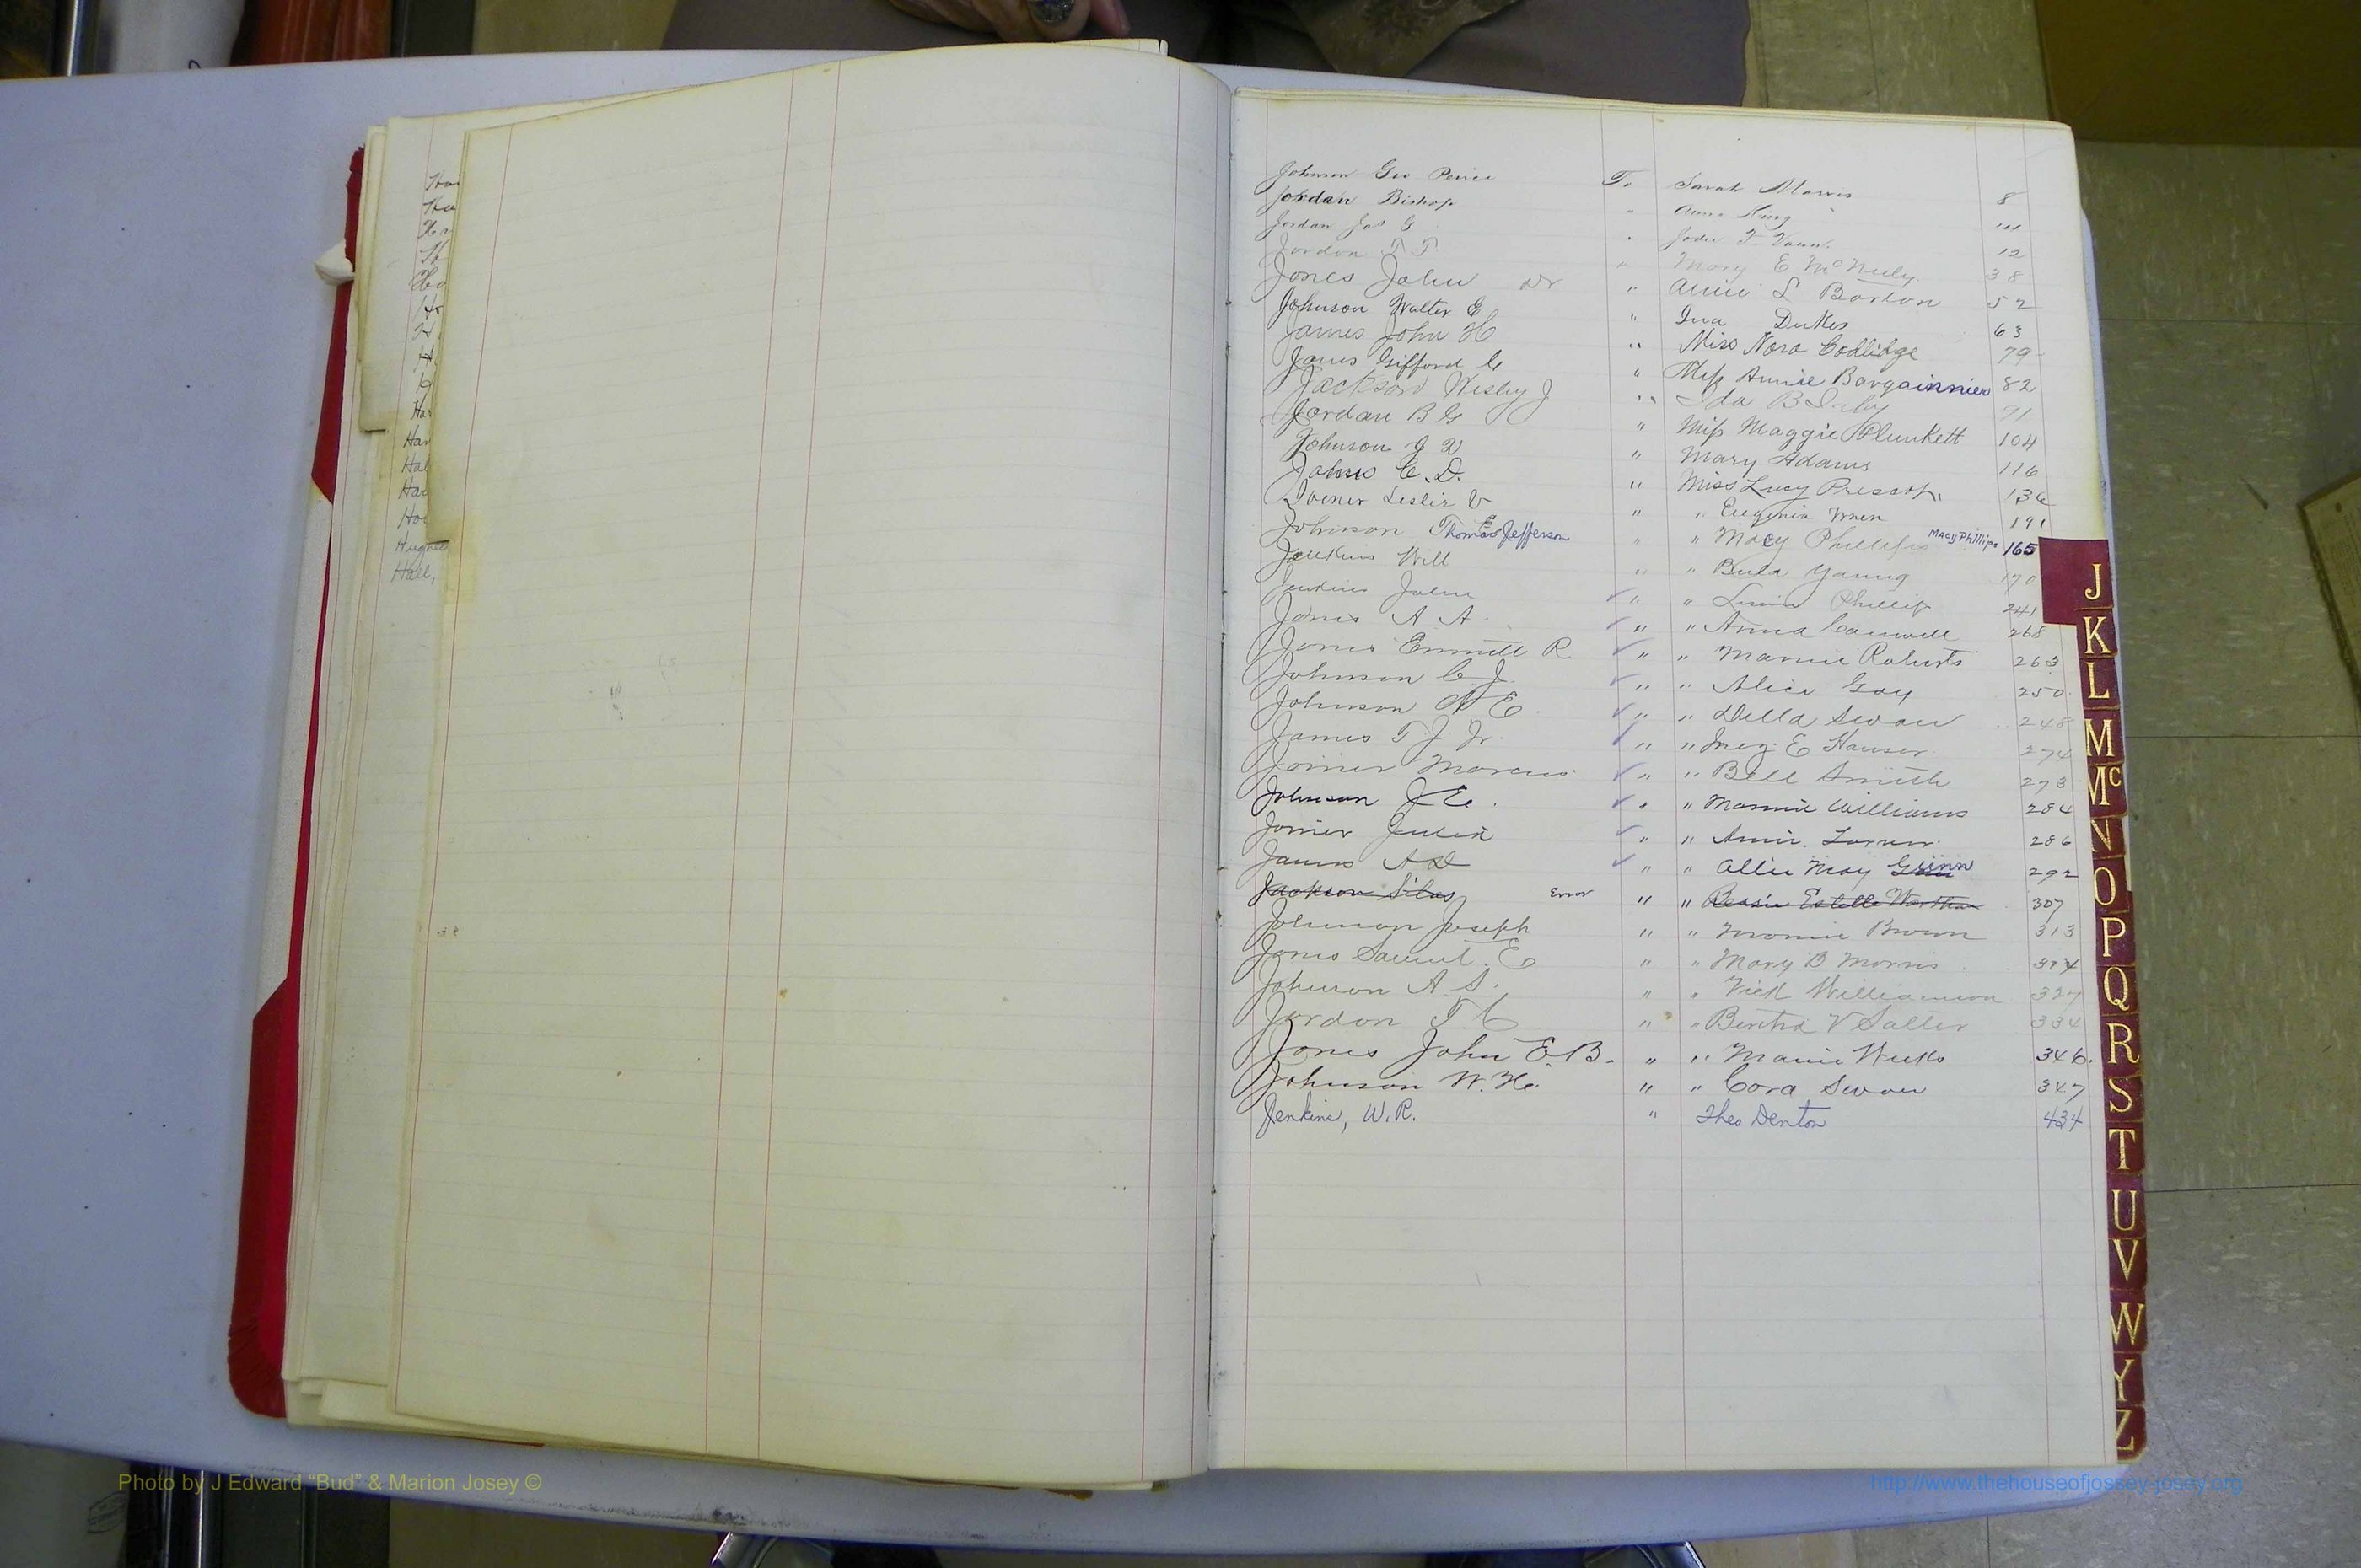 Johnson Geo To Sarah 8
Jordan Bishop " Anna King
Jordan Jas G " 12
Jordon T T " Mary E McNeely 38
Jones John Dr " Annie L Barton 52
Johnson Walter E " Iva Dukes 63
James John H " Miss Nora Coolidge 79
Gifford " Miss Annie Bargainnier 82
Jackson Wesley J " Ida B 91
Jordan B G " Miss Maggie Plunkett 104
Johnson J " Mary Adams 116
C. D. " Miss Lucy
Joiner Leslie V " " Eugenia 191
Johnson Thomas Jefferson " " Macy Phillips Macy Phillips 165
Jenkins Will " " Bula Young 170
Jenkins John " " Phillips 241
Jones A A " " Anna 268
Jones Emmett R " " Mamie Roberts 263
Johnson C J " " Alice Goy 250
Johnson N E " " Della Swan 248
James T J Jr. " " Inez E Hauser 274
Joiner Marcus " " Bell Smith 273
Johnson J E. " " Mamie Williams 284
Joiner " " Annie 286
James A D " " Allie May Grinn 292
Jackson Silas Error " " Estelle 307
Johnson Joseph " " Brown 313
Jones Samuel E " " Mary B Morris 314
Johnson A S. " " Williamson 327
Jordon T C " " Bertha V 334
Jones John E B. " " Mamie Weeks 346.
Johnson W. H. " " Cora Swan 347
Jenkins, W.R. " Theo Denton 434
Hall,
J
K
L
M
Mc
N
O
P
Q
R
S
T
U
V
W
Y
Z
Photo by J Edward “Bud” & Marion Josey ©
http://www.thehouseofjossey-josey.org